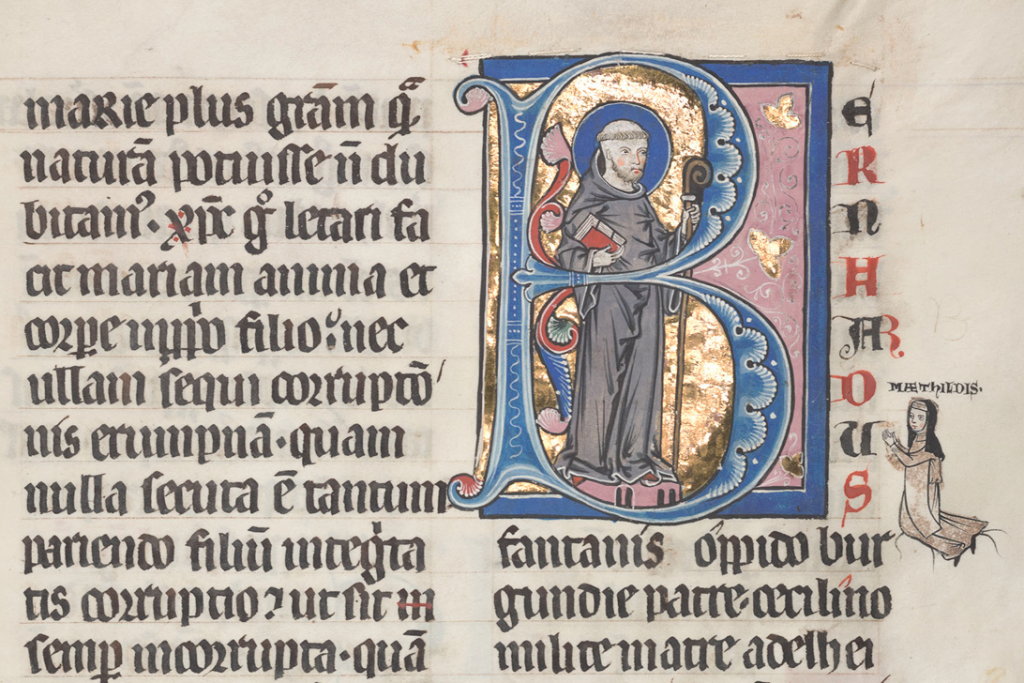 marie plus grām qᷓ
naturā potuisse n̄ du
bitamꝰ. xp̄c gͦ letari fa
cit mariam anima et
corꝑe in ꝓp̄o filio. nec
ullam sequi corruptō
nis erumpnā. quam
nulla secuta ē tantum
pariendo filiū integͥta
tis corruptio ⁊ ut sit in
semꝑ incorrupta. quā
BERNHARDUS
MÆTHILDIS.
fantanis oppido bur
gundie patre. tecilino
milite matre adelhei